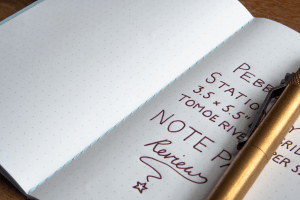 PEBB
STATIO
3.5 x 5.5"
TOMOE RIVER
NOTE P
Review